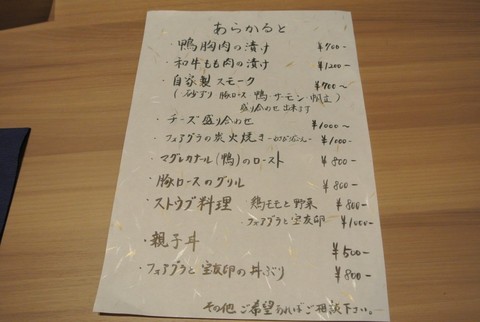 あらかると
・鴨胸肉の漬け ¥700-
・和牛もも肉の漬け ¥1200-
・自家製スモーク ¥700~
(砂ずり 豚ロース 鴨 サーモン 帆立)
盛り合わせ出来ます
・チーズ盛り合わせ ¥1000~
・フォアグラの炭火焼き ¥1000-
・マグレカナール(鴨)のロースト ¥800-
・豚ロースのグリル ¥800-
・ストウブ料理 鶏ももと野菜 ¥800-
・フォアグラと宝友卵 ¥1000-
・親子丼 ¥500-
・フォアグラと宝友卵の丼ぶり ¥800-
その他ご希望あればご相談下さい。